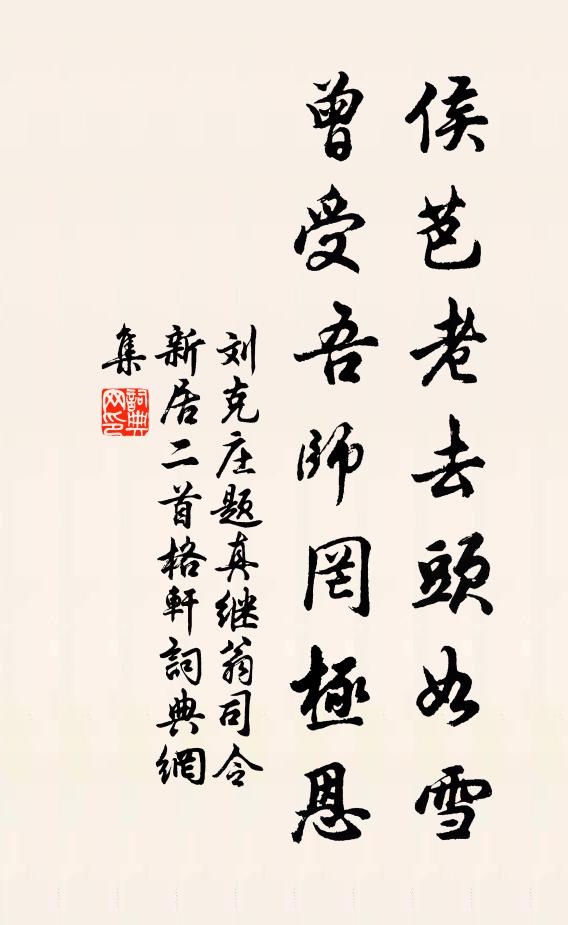 侯芭老去頭如雪
曾受吾師罔極恩
刘克庄题真继翁司令
新居二首格軒詞典網
集
詞典
网印